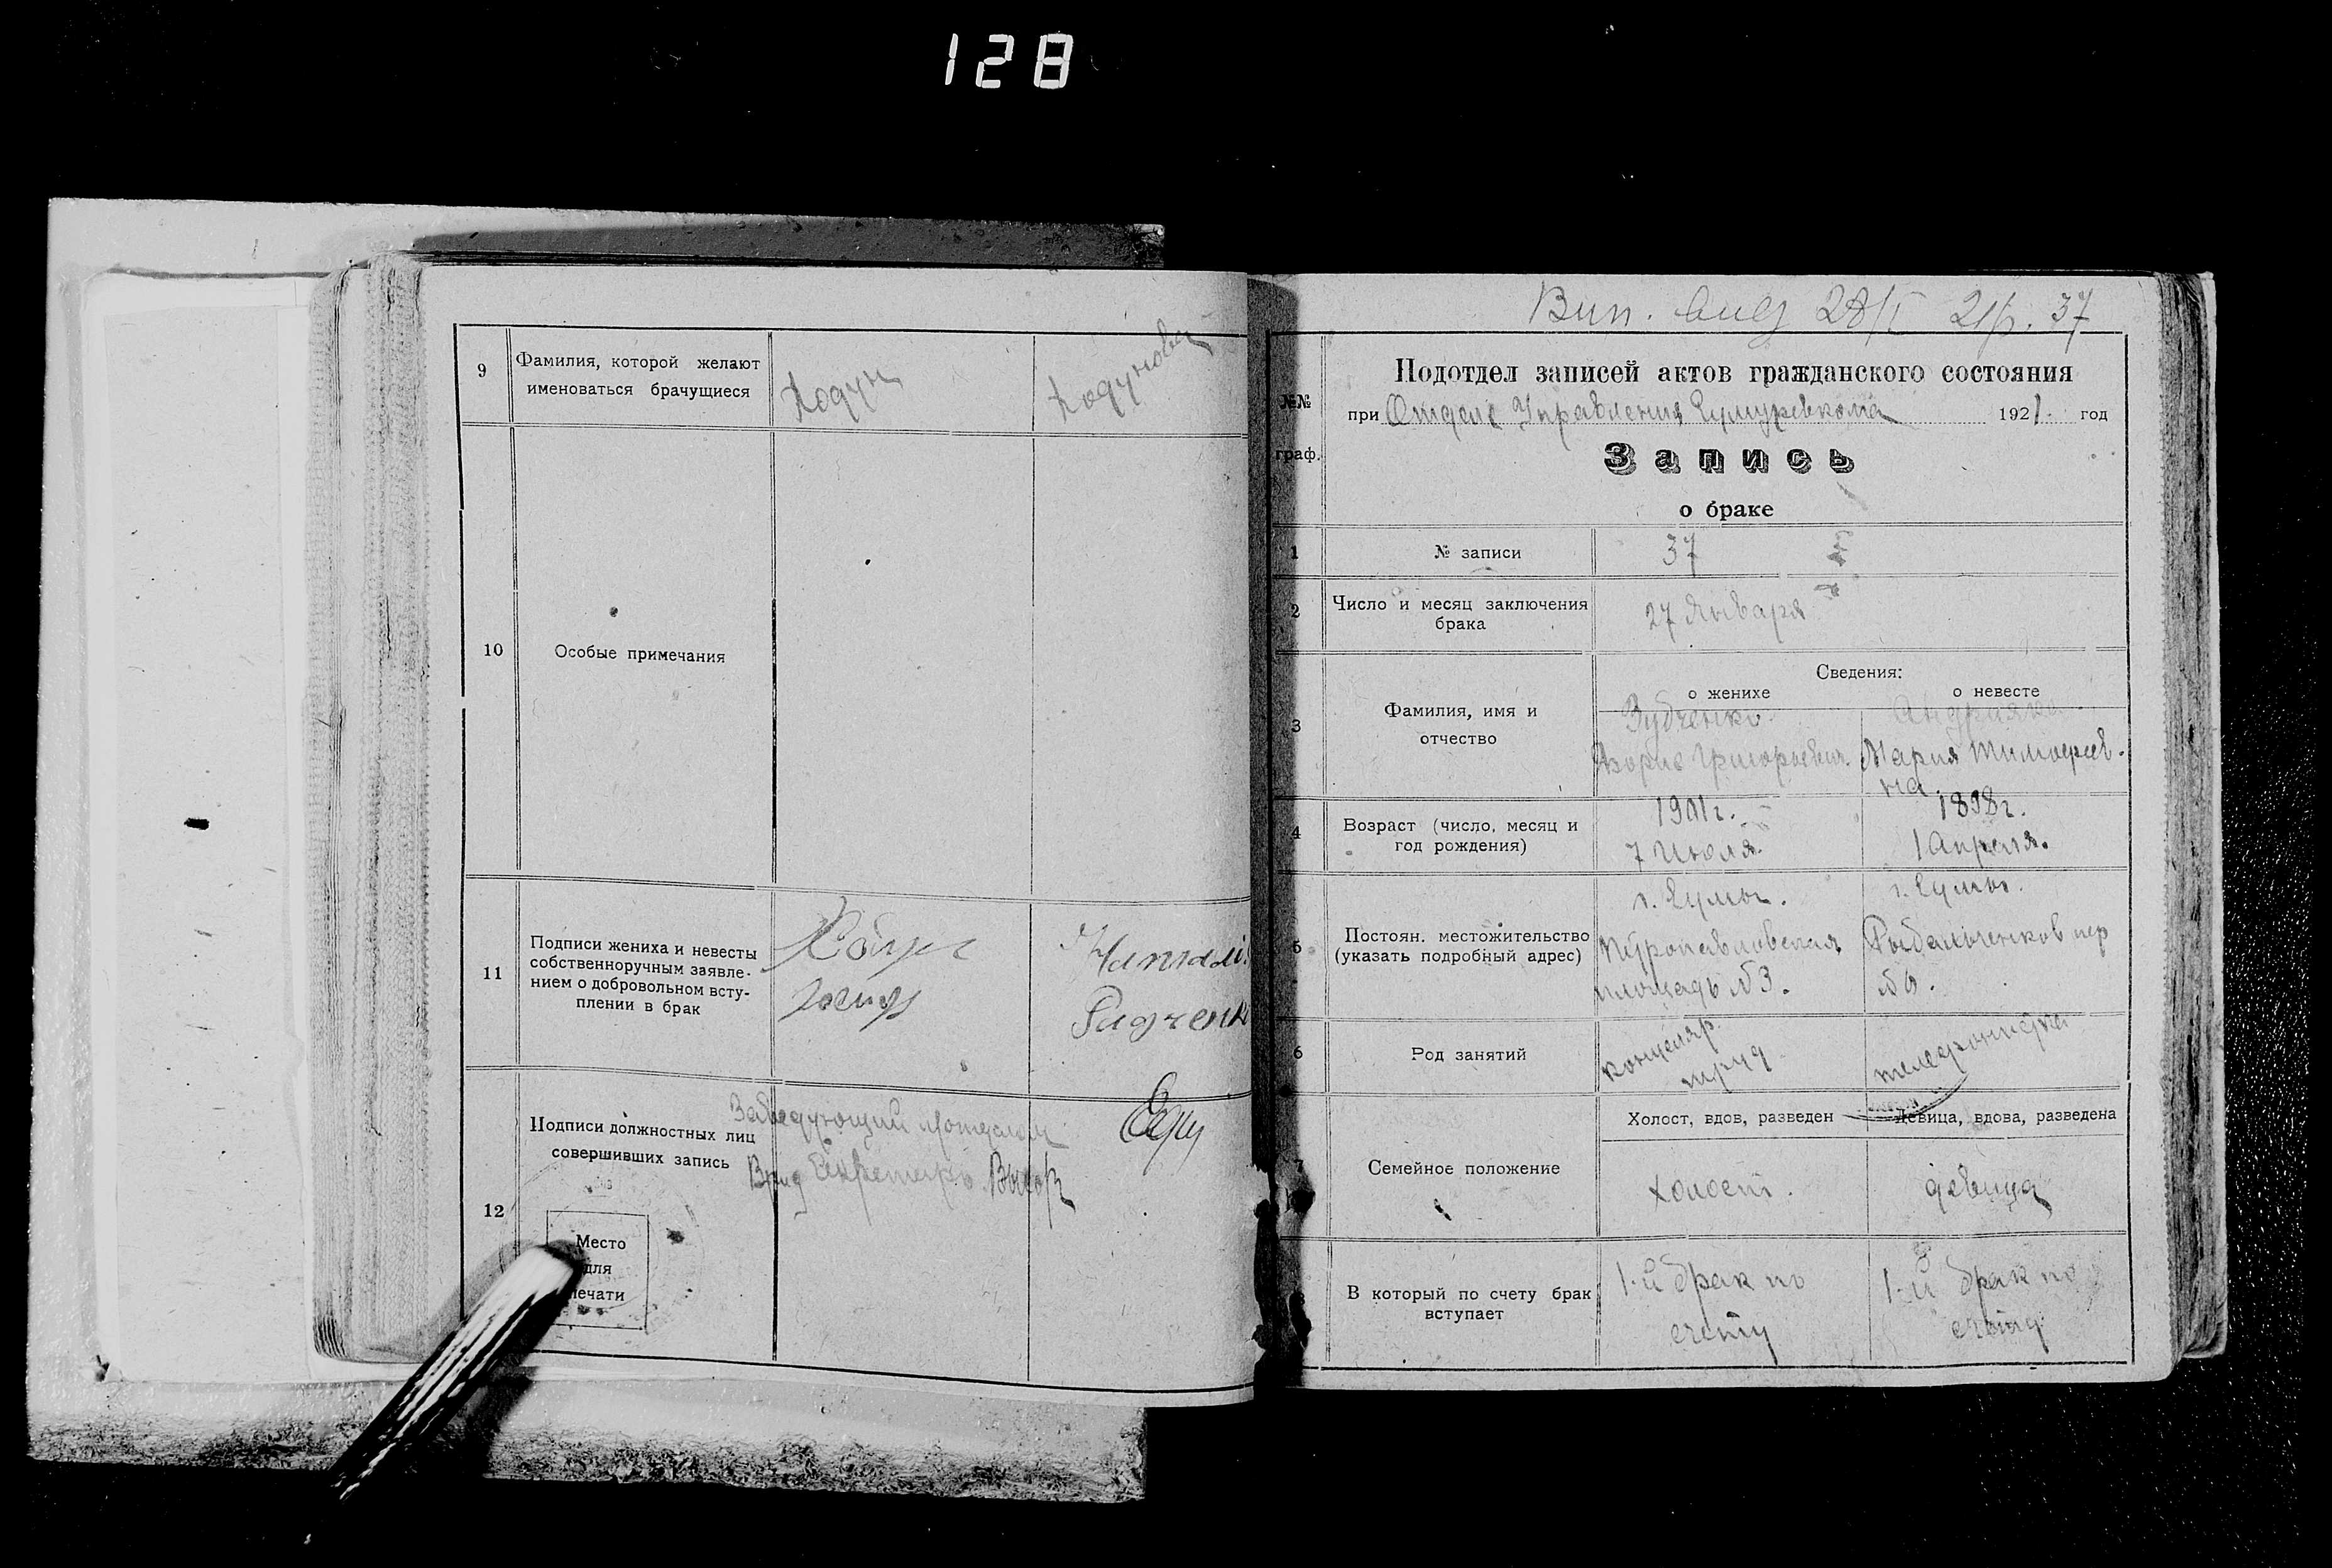 128
9
Фамилия, которой желают
именоваться брачущиеся
Ходун
10
Особые примечания
11
Подписи жениха и невесты
собственноручным заявле-
нием о добровольном всту-
плении в брак
Радченк
12
Подписи должностных лиц
совершивших запись
Заведующий
Врид Секретаря
Место
для
печати
28/I 21 г. 37
№№
граф.
Подотдел записей актов гражданского состояния
при Отделе Управления 1921 год
Запись
о браке
1
№ записи
37
2
Число и месяц заключения
брака
27 Января
3
Фамилия, имя и
отчество
Сведения:
о женихе
о невесте
Зубченко
Борис Григорьевич
Мария Тимофеев-
на
4
Возраст (число, месяц и
год рождения)
1901 г.
7 Июля.
1898 г.
1 Апреля.
5
Постоян. местожительство
(указать подробный адрес)
г. Сумы.
площадь №3.
г. Сумы.
Рыбальченков пер
6
Род занятий
канцеляр.
труд
телефонистка
7
Семейное положение
Холост, вдов, разведен
Девица, вдова, разведена
холост.
девица
В который по счету брак
вступает
1-й брак по
счету
1-й брак по
счету